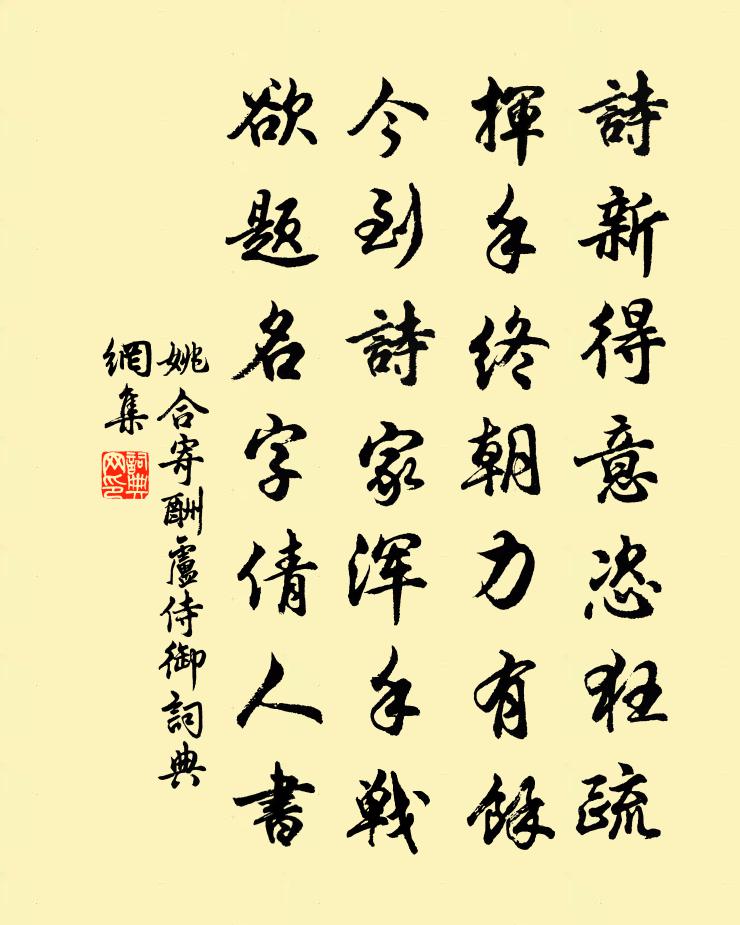 詩新得意恣狂疏
揮手終朝力有餘
今到詩家渾手戦
欲題名字倩人書
姚合寄酬盧侍御詞典
網集
詞典网印